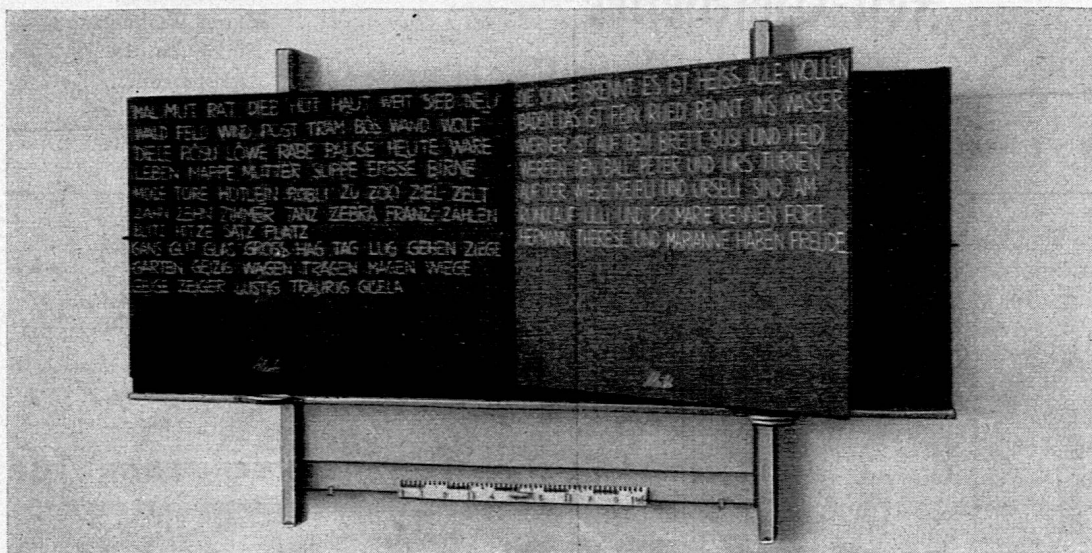 MAL MUT RAT DIEB HUT HAUT WEIT SIEB BEIL
WALD FELD WIND POST TRAM BÖS WAND WOLF
DIELE RÖSLI LÖWE RABE PAUSE HEUTE WARE
LEBEN MAPPE MUTTER SUPPE ERBSE BIRNE
TORE HÜTLEIN ZU ZOO ZIEL ZELT
ZAHN ZEHN ZIMMER TANZ ZEBRA FRANZ ZAHLEN
BLITZ HITZE SATZ PLATZ
GANS GUT GLAS GROSS HAG TAG LUG GEHEN ZIEGE
GARTEN GEIZIG WAGEN TRAGEN MAGEN WIEGE
GEIGE ZEIGER LUSTIG TRAURIG GISELA
DIE SONNE BRENNT ES IST HEISS ALLE WOLLEN
BADEN DAS IST FEIN RUEDI RENNT INS WASSER
WERNER IST AUF DEM BRETT SUSI UND HEIDI
WERFEN DEN BALL PETER UND URS TURNEN
AUF DER WIESE UND URSELI SIND AM
RUNDLAUF LILLI UND ROSMARIE RENNEN FORT
HERMANN THERESE UND MARIANNE HABEN FREUDE